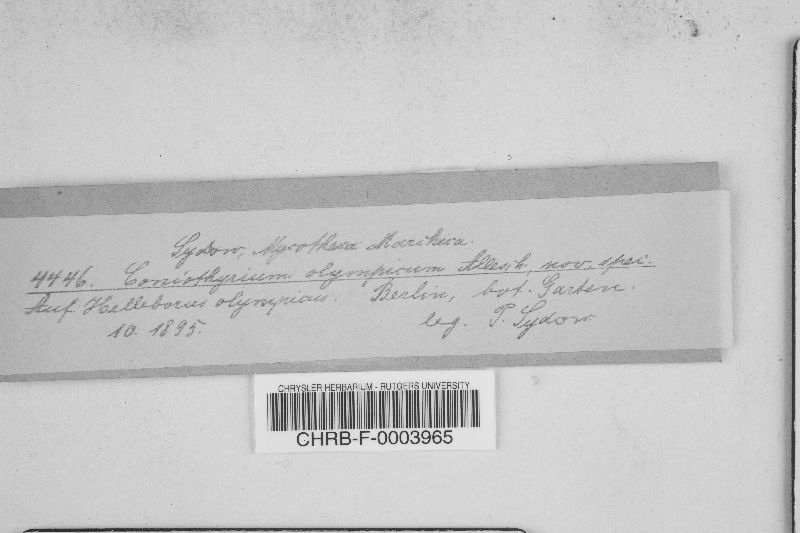 Sydow, Mycotheca Marchica.
4446. Coniothyrium olympicum Allesch. nov. spec.
Auf Helleborus olympicus. Berlin, bot. Garten.
10. 1895. leg. P. Sydow
CHRYSLER HERBARIUM - RUTGERS UNIVERSITY
CHRB-F-0003965